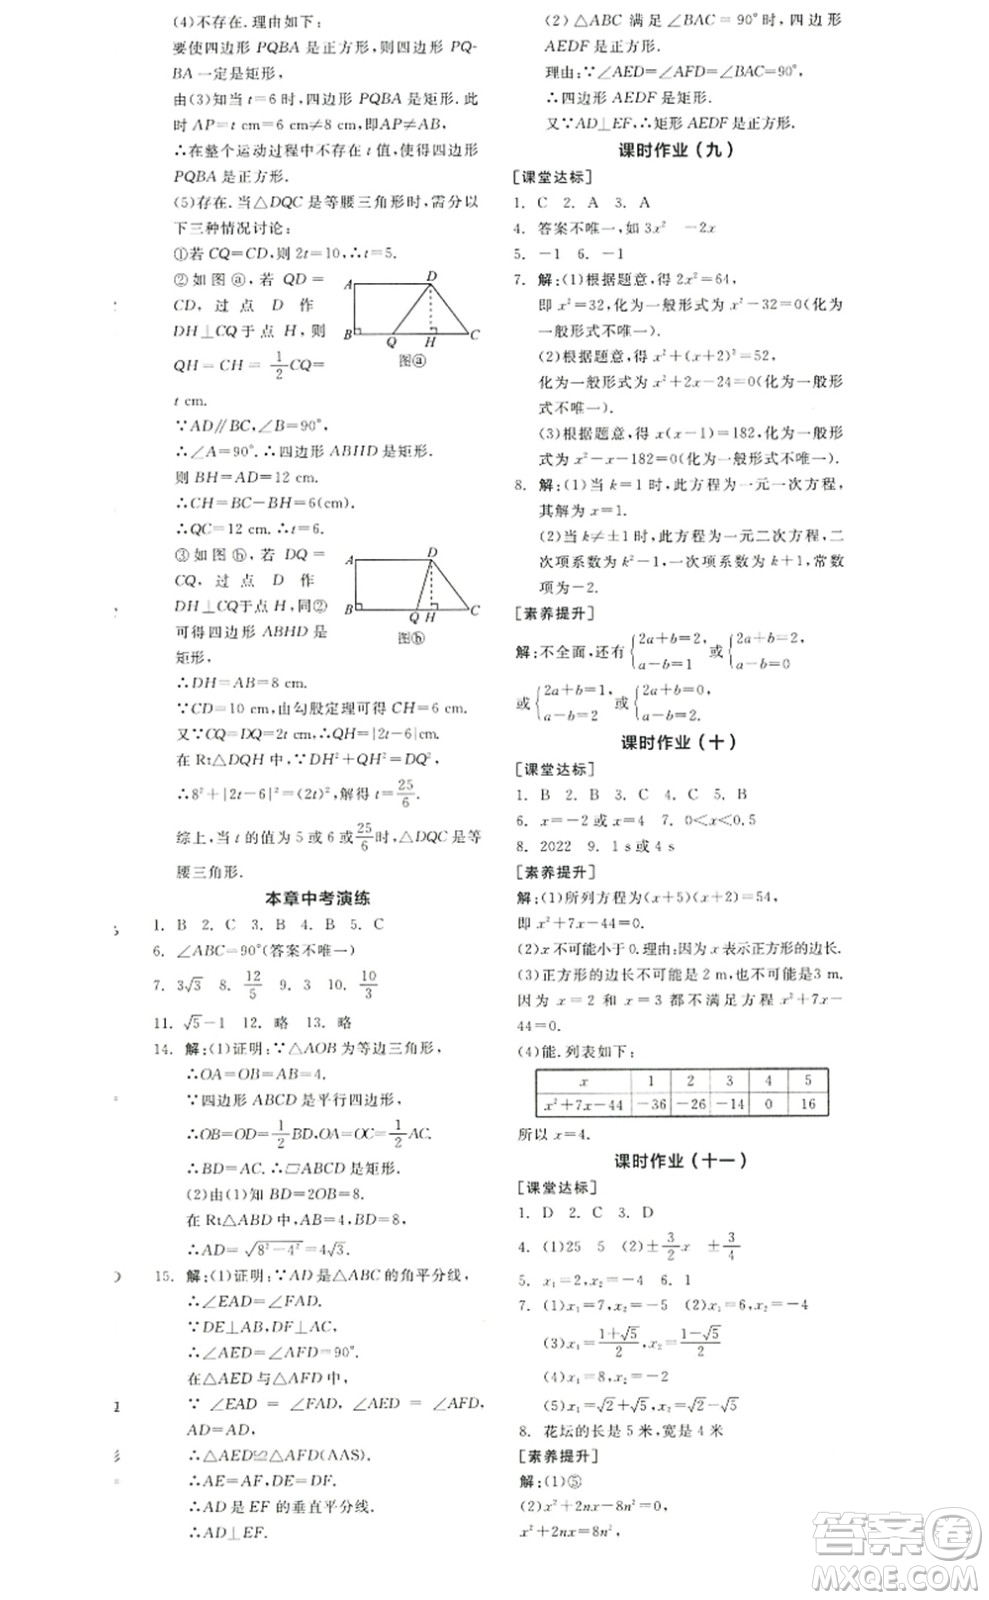 (4)不存在.理由如下:
要使四边形 PQBA 是正方形,则四边形 PQ-
BA 一定是矩形,
由(3)知当 t=6 时,四边形 PQBA 是矩形.此
时 AP=t cm=6 cm≠8 cm,即AP≠AB,
∴在整个运动过程中不存在 t 值,使得四边形
PQBA 是正方形.
(5)存在.当△DQC是等腰三角形时,需分以
下三种情况讨论:
①若 CQ=CD,则 2t=10,∴t=5.
②如图ⓐ,若 QD=
CD,过点 D 作
DH⊥CQ于点 H,则
QH=CH=1/2 CQ=
t cm.
A D
B Q H C
图ⓐ
∵AD∥BC,∠B=90°,
∴∠A=90°.∴四边形 ABHD 是矩形.
则 BH=AD=12 cm.
∴CH=BC-BH=6(cm).
∴QC=12 cm.∴t=6.
③如图ⓑ,若 DQ=
CQ,过点 D 作
DH⊥CQ于点 H,同②
可得四边形 ABHD 是
矩形.
A D
B Q H C
图ⓑ
∴DH=AB=8 cm.
∵CD=10 cm,由勾股定理可得 CH=6 cm.
又∵CQ=DQ=2t cm,∴QH=|2t-6|cm.
在 Rt△DQH 中,∵DH²+QH²=DQ²,
∴8²+|2t-6|²=(2t)²,解得 t=25/6.
综上,当 t 的值为 5 或 6 或25/6时,△DQC 是等
腰三角形.
本章中考演练
1. B 2. C 3. B 4. B 5. C
6. ∠ABC=90°(答案不唯一)
7. 3√3 8. 12/5 9. 3 10. 10/3
11. √5-1 12. 略 13. 略
14. 解:(1)证明:∵△AOB 为等边三角形,
∴OA=OB=AB=4.
∵四边形 ABCD 是平行四边形,
∴OB=OD=1/2 BD,OA=OC=1/2 AC.
∴BD=AC.∴▱ABCD 是矩形.
(2)由(1)知 BD=2OB=8.
在 Rt△ABD 中,AB=4,BD=8,
∴AD=√(8²-4²)=4√3.
15. 解:(1)证明:∵AD是△ABC的角平分线,
∴∠EAD=∠FAD.
∵DE⊥AB,DF⊥AC,
∴∠AED=∠AFD=90°.
在△AED 与△AFD 中,
∵∠EAD=∠FAD,∠AED=∠AFD,
AD=AD,
∴△AED≌△AFD(AAS).
∴AE=AF,DE=DF.
∴AD 是 EF 的垂直平分线.
∴AD⊥EF.
(2)△ABC 满足∠BAC=90°时,四边形
AEDF 是正方形.
理由:∵∠AED=∠AFD=∠BAC=90°,
∴四边形 AEDF 是矩形.
又∵AD⊥EF,∴矩形 AEDF 是正方形.
课时作业(九)
[课堂达标]
1. C 2. A 3. A
4. 答案不唯一,如 3x² -2x
5. -1 6. -1
7. 解:(1)根据题意,得 2x²=64,
即 x²=32,化为一般形式为 x²-32=0(化为
一般形式不唯一).
(2)根据题意,得 x²+(x+2)²=52,
化为一般形式为 x²+2x-24=0(化为一般形
式不唯一).
(3)根据题意,得 x(x-1)=182,化为一般形
式为 x²-x-182=0(化为一般形式不唯一).
8. 解:(1)当 k=1 时,此方程为一元一次方程,
其解为 x=1.
(2)当 k≠±1时,此方程为一元二次方程,二
次项系数为 k²-1,一次项系数为 k+1,常数
项为-2.
[素养提升]
解:不全面,还有{2a+b=2, a-b=1 或{2a+b=2, a-b=0
或{2a+b=1, a-b=2 或{2a+b=0, a-b=2.
课时作业(十)
[课堂达标]
1. B 2. B 3. C 4. C 5. B
6. x=-2 或 x=4 7. 0<x<0.5
8. 2022 9. 1 s 或 4 s
[素养提升]
解:(1)所列方程为(x+5)(x+2)=54,
即 x²+7x-44=0.
(2)x 不可能小于 0.理由:因为 x 表示正方形的边长.
(3)正方形的边长不可能是 2 m,也不可能是 3 m.
因为 x=2 和 x=3 都不满足方程 x²+7x-
44=0.
(4)能.列表如下:
x 1 2 3 4 5
x²+7x-44 -36 -26 -14 0 16
所以 x=4.
课时作业(十一)
[课堂达标]
1. D 2. C 3. D
4. (1)25 5 (2)±3/2 x ±3/4
5. x₁=2,x₂=-4 6. 1
7. (1)x₁=7,x₂=-5 (2)x₁=6,x₂=-4
(3)x₁=(1+√5)/2,x₂=(1-√5)/2
(4)x₁=8,x₂=-2
(5)x₁=√2+√5,x₂=√2-√5
8. 花坛的长是 5 米,宽是 4 米
[素养提升]
解:(1)⑤
(2)x²+2nx-8n²=0,
x²+2nx=8n²,
答案卷
MXQE.COM